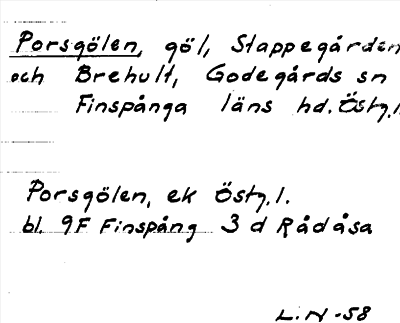 Porsgölen, göl, Stappegården
och Brehult, Godegårds sn
Finspånga läns hd. Östg.l.
Porsgölen, ek Östg.l.
bl. 9F Finspång 3 d Rådåsa
L.N -58